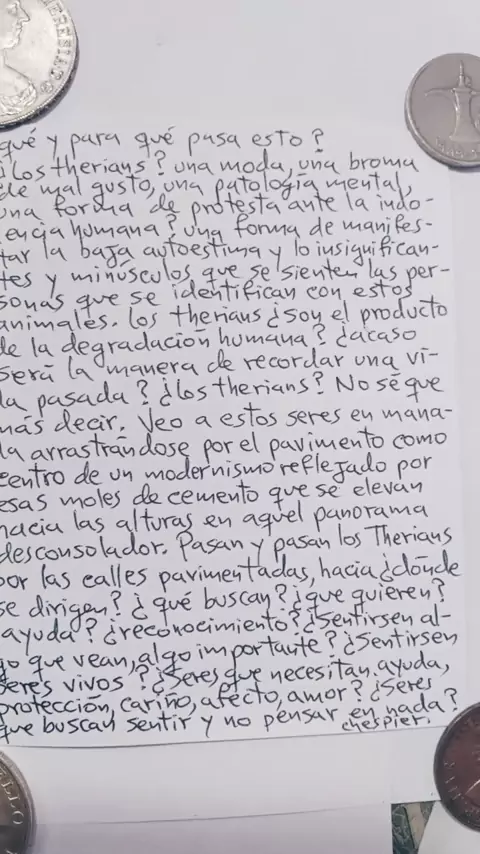 qué y para qué pasa esto?
¿Los therians? una moda, una broma
de mal gusto, una patología mental,
una forma de protesta ante la indo-
encia humana? una forma de manifes-
tar la baja autoestima y lo insignifican-
tes y minúsculos que se sienten las per-
sonas que se identifican con estos
animales. Los therians ¿son el producto
de la degradación humana? ¿acaso
será la manera de recordar una vi-
da pasada? ¿los therians? No sé que
más decir. Veo a estos seres en mana-
da arrastrándose por el pavimento como
centro de un modernismo reflejado por
esas moles de cemento que se elevan
hacia las alturas en aquel panorama
desconsolador. Pasan y pasan los Therians
por las calles pavimentadas, hacia ¿dónde
se dirigen? ¿qué buscan? ¿que quieren?
ayuda? ¿reconocimiento? ¿Sentirsen al-
go que vean, algo importante? ¿Sentirsen
seres vivos? ¿Seres que necesitan ayuda,
protección, cariño, afecto, amor? ¿Seres
que buscan sentir y no pensar en nada?
chespier.